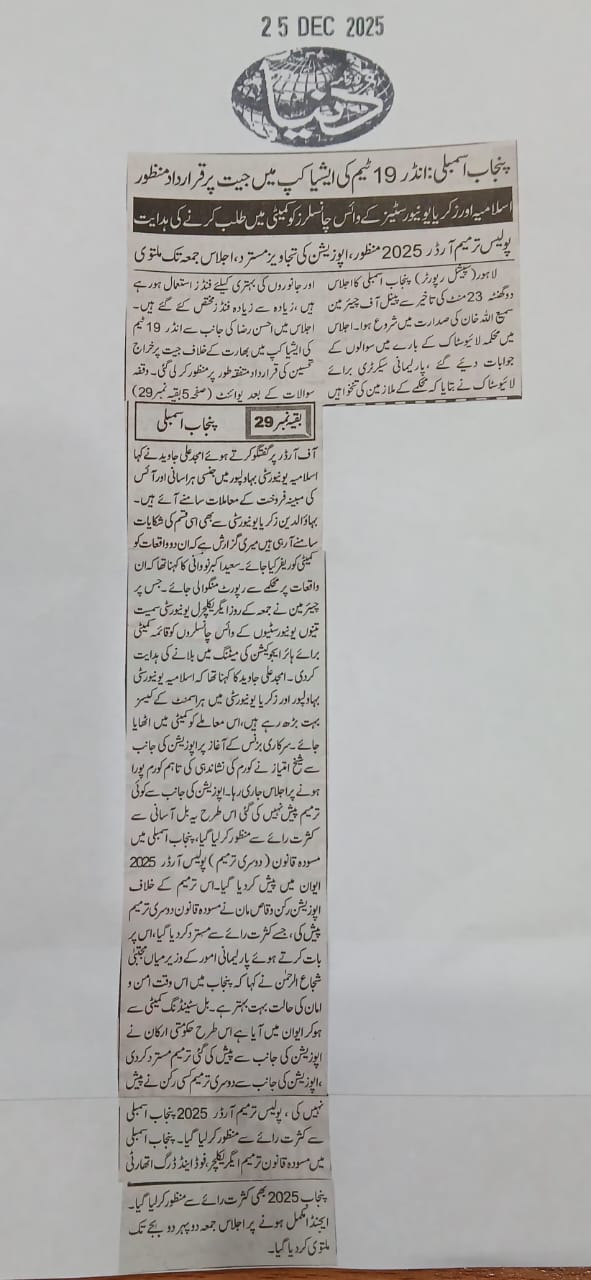 25 DEC 2025
روزنامہ
دنیا
پنجاب اسمبلی: انڈر 19 ٹیم کی ایشیا کپ میں جیت پر قرارداد منظور
اسلامیہ اور زکریا یونیورسٹیز کے وائس چانسلرز کو کمیٹی میں طلب کرنے کی ہدایت
پولیس ترمیم آرڈر 2025 منظور، اپوزیشن کی تجاویز مسترد، اجلاس جمعہ تک ملتوی
لاہور (سپیشل رپورٹر) پنجاب اسمبلی کا اجلاس
دو گھنٹہ 23 منٹ کی تاخیر سے پینل آف چیئرمین
سمیع اللہ خان کی صدارت میں شروع ہوا۔ اجلاس
میں محکمہ لائیوسٹاک کے بارے میں سوالوں کے
جوابات دیئے گئے، پارلیمانی سیکرٹری برائے
لائیوسٹاک نے بتایا کہ محکمے کے ملازمین کی تنخواہیں
اور جانوروں کی بہتری کیلئے فنڈز استعمال ہو رہے
ہیں، زیادہ سے زیادہ فنڈز مختص کئے گئے ہیں۔
اجلاس میں احسن رضا کی جانب سے انڈر 19 ٹیم
کی ایشیا کپ میں بھارت کے خلاف جیت پر خراج
تحسین کی قرارداد متفقہ طور پر منظور کر لی گئی۔ وقفہ
سوالات کے بعد پوائنٹ (صفحہ 5 بقیہ نمبر 29)
بقیہ نمبر 29 پنجاب اسمبلی
آف آرڈر پر گفتگو کرتے ہوئے امجد علی جاوید نے کہا
اسلامیہ یونیورسٹی بہاولپور میں جنسی ہراسانی اور آئس
کی مبینہ فروخت کے معاملات سامنے آئے ہیں۔
بہاؤالدین زکریا یونیورسٹی سے بھی اسی قسم کی شکایات
سامنے آرہی ہیں میری گزارش ہے کہ ان دو واقعات کو
کمیٹی کو ریفر کیا جائے۔ سعید اکبر نوانی کا کہنا تھا کہ ان
واقعات پر محکمے سے رپورٹ منگوالی جائے۔ جس پر
چیئرمین نے جمعہ کے روز ایگریکلچرل یونیورسٹی سمیت
تینوں یونیورسٹیوں کے وائس چانسلروں کو قائمہ کمیٹی
برائے ہائر ایجوکیشن کی میٹنگ میں بلانے کی ہدایت
کردی۔ امجد علی جاوید کا کہنا تھا کہ اسلامیہ یونیورسٹی
بہاولپور اور زکریا یونیورسٹی میں ہراسمنٹ کے کیسز
بہت بڑھ رہے ہیں، اس معاملے کو کمیٹی میں اٹھایا
جائے۔ سرکاری بزنس کے آغاز پر اپوزیشن کی جانب
سے شیخ امتیاز نے کورم کی نشاندہی کی تاہم کورم پورا
ہونے پر اجلاس جاری رہا۔ اپوزیشن کی جانب سے کوئی
ترمیم پیش نہیں کی گئی اس طرح یہ بل آسانی سے
کثرت رائے سے منظور کر لیا گیا، پنجاب اسمبلی میں
مسودہ قانون (دوسری ترمیم) پولیس آرڈر 2025
ایوان میں پیش کر دیا گیا۔ اس ترمیم کے خلاف
اپوزیشن رکن وقاص مان نے مسودہ قانون دوسری ترمیم
پیش کی، جسے کثرت رائے سے مسترد کر دیا گیا، اس پر
بات کرتے ہوئے پارلیمانی امور کے وزیر میاں مجتبیٰ
شجاع الرحمٰن نے کہا کہ پنجاب میں اس وقت امن و
امان کی حالت بہت بہتر ہے۔ بل سٹینڈنگ کمیٹی سے
ہو کر ایوان میں آیا ہے اس طرح حکومتی ارکان نے
اپوزیشن کی جانب سے پیش کی گئی ترمیم مسترد کر دی
، اپوزیشن کی جانب سے دوسری ترمیم کسی رکن نے پیش
نہیں کی، پولیس ترمیم آرڈر 2025 پنجاب اسمبلی
سے کثرت رائے سے منظور کر لیا گیا۔ پنجاب اسمبلی
میں مسودہ قانون ترمیم ایگریکلچر، فوڈ اینڈ ڈرگ اتھارٹی
پنجاب 2025 بھی کثرت رائے سے منظور کر لیا گیا۔
ایجنڈا مکمل ہونے پر اجلاس جمعہ دوپہر دو بجے تک
ملتوی کر دیا گیا۔